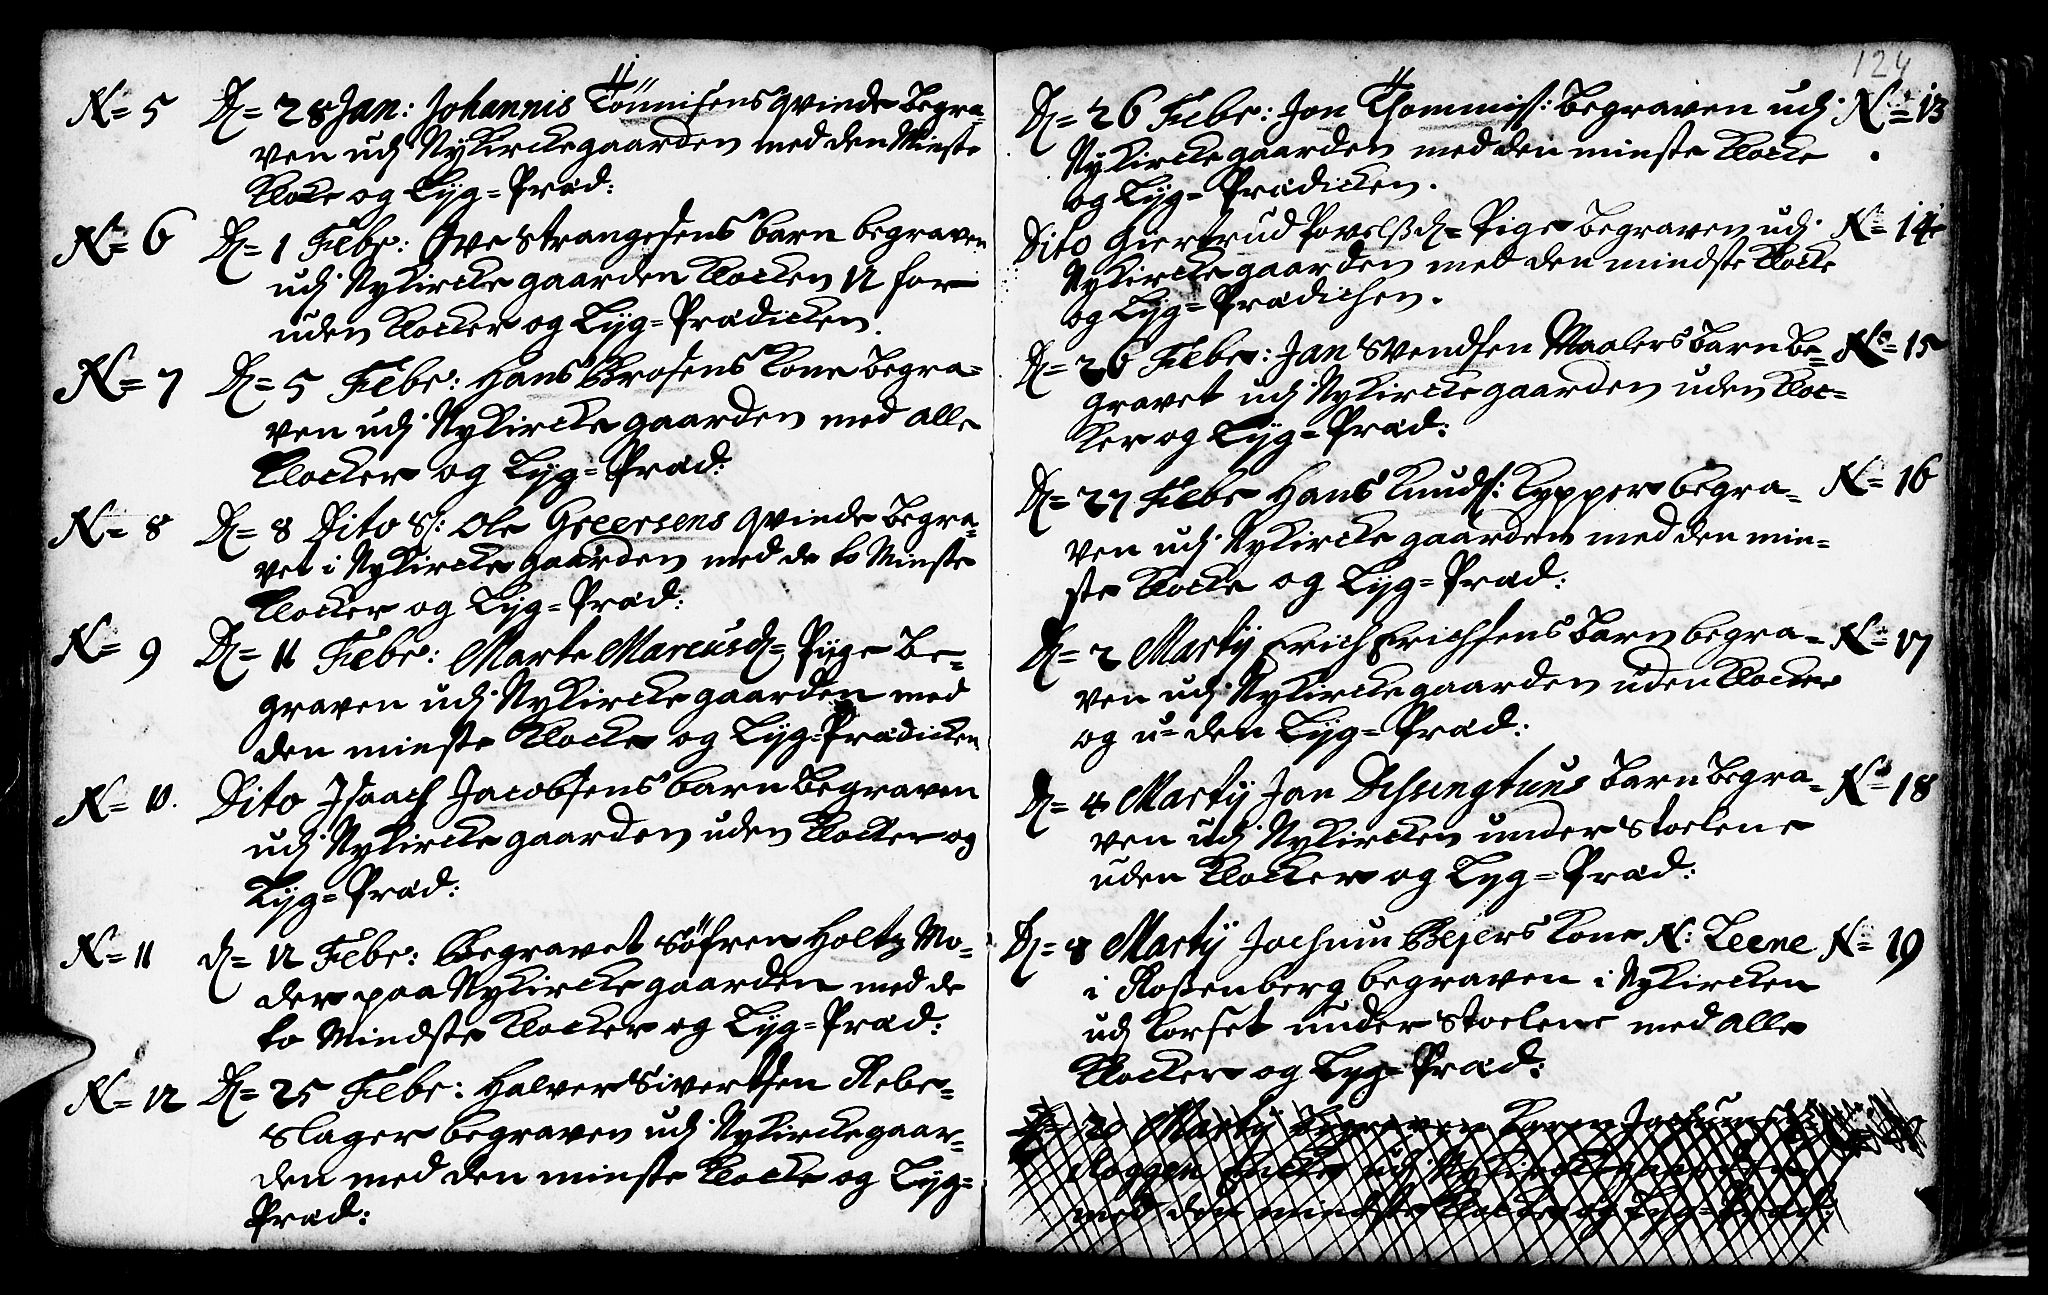 N= 5 D= 28 Jan: Johannis Tönnisens qvinde Begra-
ven udj Nykirckegaarden med den Minste
Klocke og Lyg=Præd:
N= 6 D= 1 Febr: Ove Strangesens barn begraven
udj Nykirckegaarden Klocken 12 for
uden Klocker og Lyg=Prædicken.
N= 7 D= 5 Febr: Hans Brosens Kone begra-
ven udj Nykirckegaarden med alle
Klocker og Lyg=Præd:
N= 8 D= 8 Dito Sl: Ole Greersens qvinde Begra-
vet i Nykirckegaarden med de to Minste
Klocker og Lyg=Præd:
N= 9 D= 11 Febr: Marte Marcusd= Pige Be-
graven udj Nykirckegaarden med
den minste Klocke og Lyg=Prædicken
N= 10. Dito Isaach Jacobsens barn Begraven
udj Nykirckegaarden uden Klocker og
Lyg=Præd:
N= 11 d= 12 Febr: Begravet Söfren Holtz Mo-
der paa Nykirckegaarden med de
to Mindste Klocker og Lyg=Præd:
N= 12 D= 25 Febr: Halver Sivertsen Rebe-
slager begraven udj Nykirckegaar-
den med den minste Klocke og Lyg=
Præd:
124
D= 26 Febr: Jon Thommiss: Begraven udj N= 13
Nykirckegaarden med den minste Klocke
og Lyg=Prædicken.
Dito Giertrud Povelsd= Pige begraven udj N= 14
Nykirckegaarden med den mindste Klocke
og Lyg=Prædichen.
D= 26 Febr: Jan Svendsen Maalers barn Be- N= 15
gravet udj Nykirckegaarden uden Kloc-
ker og Lyg=Præd:
D= 27 Febr Hans Knuds: Kypper begra- N= 16
ven udj Nykirckegaarden med den min-
ste Klocke og Lyg=Præd:
D= 2 Martij Erich Erichsens barn begra- N= 17
ven udj Nykirckegaarden uden Klocker
og u-den Lyg=Præd:
D= 4 Martij Jan barn begra- N= 18
ven udj Nykircken under Stoelene
uden Klocker og Lyg=Præd:
D= 8 Martij Jochum Bejers Kone N: Leene N= 19
i Rosenberg begraven i Nykircken
udj Korset under Stoelene med alle
Klocker og Lyg=Præd:
D= 20 Martij Begraven Karen
Encke udj Nykirckegaarden
med den mindste Klocke og Lyg=Præd: